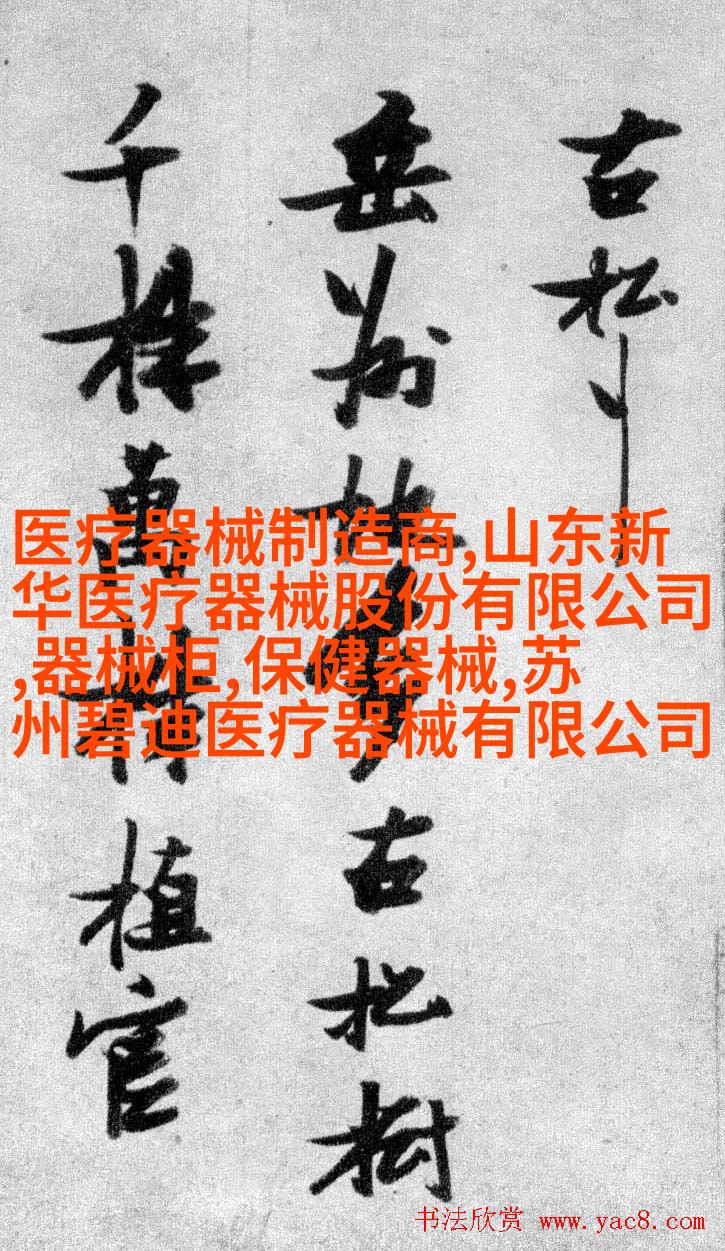 古松
岳州地多古松樹
千株萬株植官
医疗器械制造商,山东新
华医疗器械股份有限公司
,器械柜,保健器械,苏
州碧迪医疗器械有限公司
书法欣赏 www.yac8.com